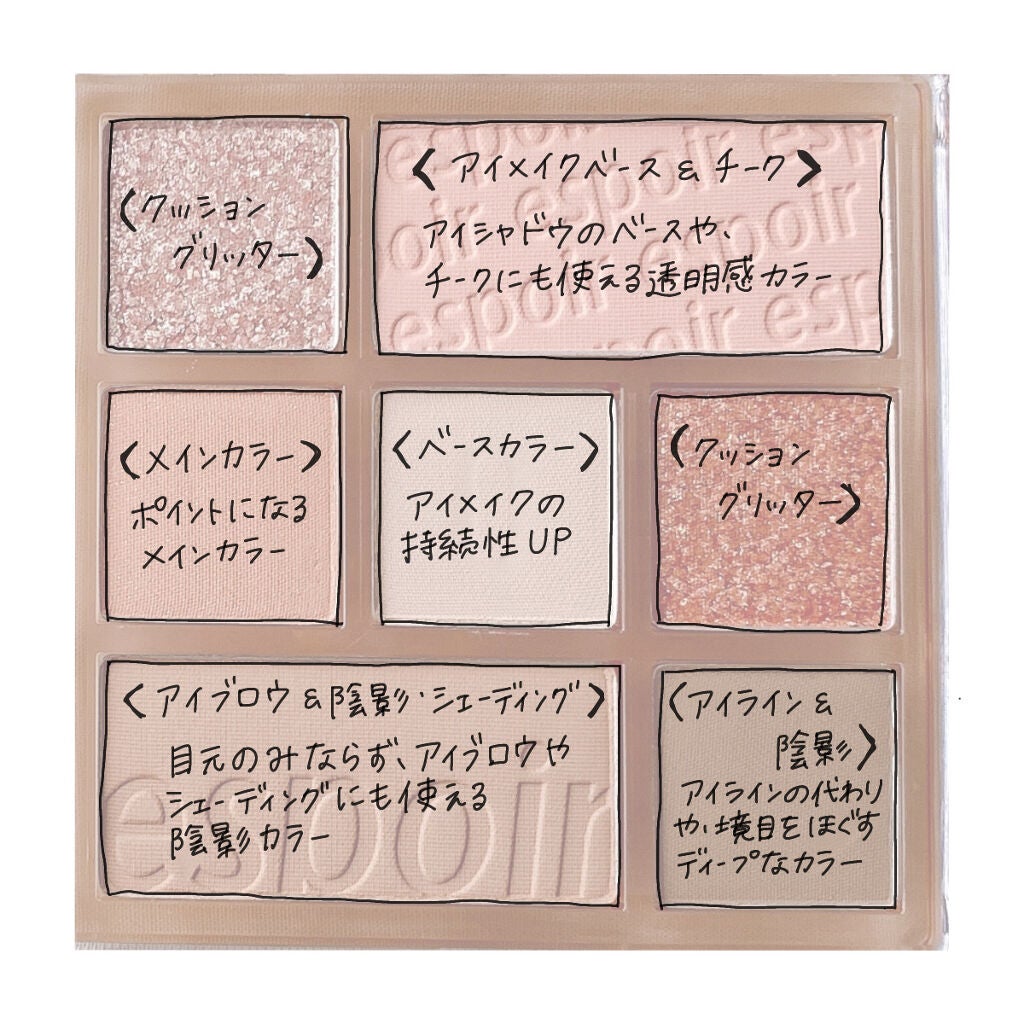 <クッション
グリッター>
<アイメイクベース & チーク>
アイシャドウのベースや、
チークにも使える透明感カラー
espoir espoir
<メインカラー>
ポイントになる
メインカラー
<ベースカラー>
アイメイクの
持続性UP
<クッション
グリッター>
<アイブロウ & 陰影・シェーディング>
目元のみならず、アイブロウや
シェーディングにも使える
陰影カラー
espoir
<アイライン &
陰影>
アイラインの代わり
や、境目をほぐす
ディープなカラー